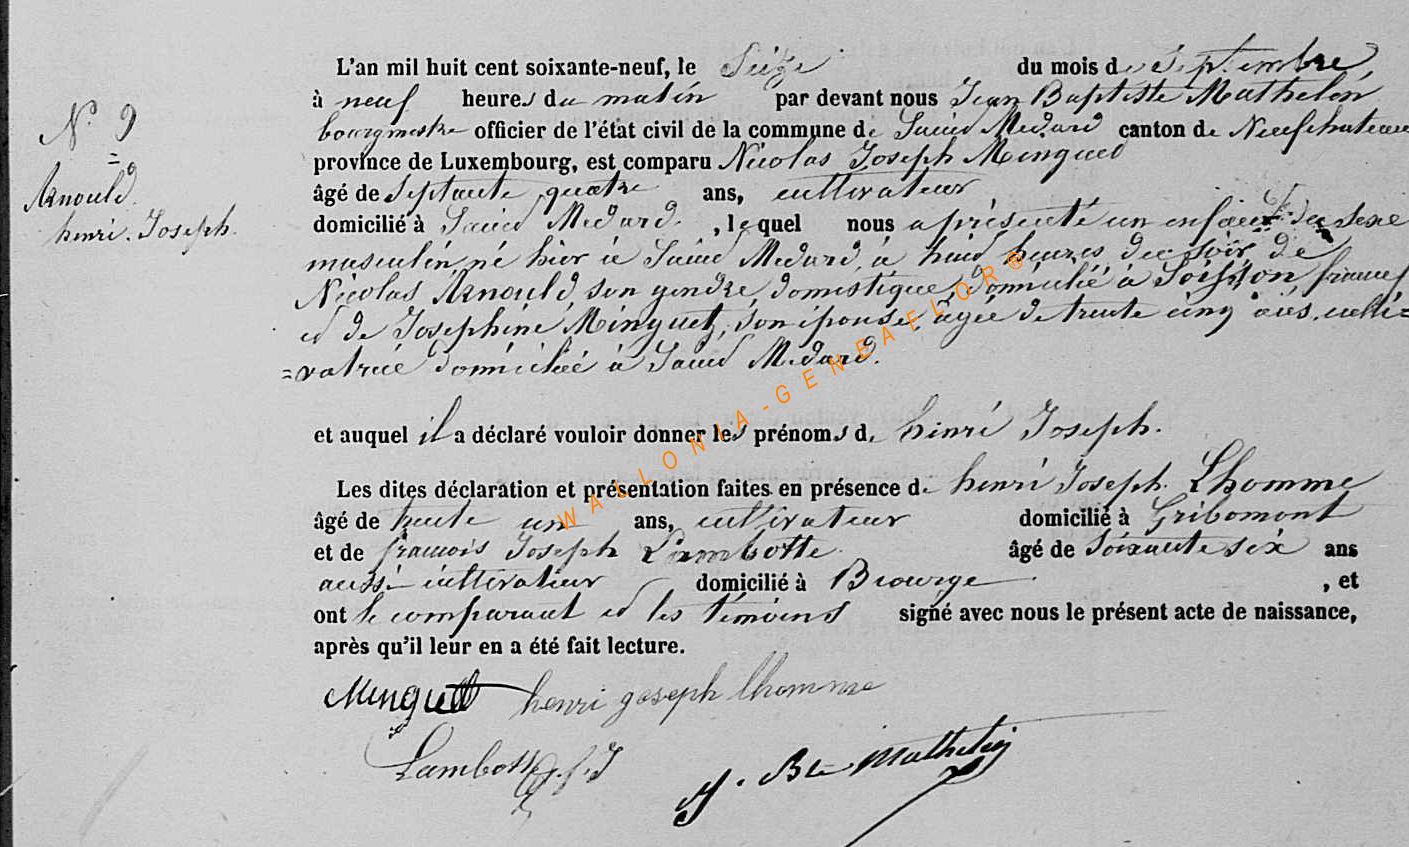 N.° 9
=
Arnould.
henri. Joseph.
L'an mil huit cent soixante-neuf, le Seize du mois de Septembre
à neuf heures du matin par devant nous Jean Baptiste Mathelin
bourgmestre officier de l'état civil de la commune de Saint Medard canton de Neufchateau
province de Luxembourg, est comparu Nicolas Joseph Minguet
âgé de Septante quatre ans, cultivateur
domicilié à Saint Medard. , lequel nous a présenté un enfant du sexe
masculin, né hier à Saint Medard, à huit heures du soir, de
Nicolas Arnould, son gendre, domestique, domicilié à Soisson, france
et de Josephine Minguet, son épouse, âgée de trente cinq ans, culti=
=vatrice domiciliée à Saint Medard.
et auquel il a déclaré vouloir donner les prénoms de henri Joseph.
Les dites déclaration et présentation faites en présence de henri Joseph. Lhomme
âgé de trente un ans, cultivateur domicilié à Gribomont
et de françois Joseph Lambotte. âgé de soixante six ans
aussi cultivateur domicilié à Biourge , et
ont le comparant et les témoins signé avec nous le présent acte de naissance,
après qu'il leur en a été fait lecture.
Minguet henri joseph lhomme
Lambotte f. J
J. Bte Mathelin
WALLONIA-GENEAFLOR©